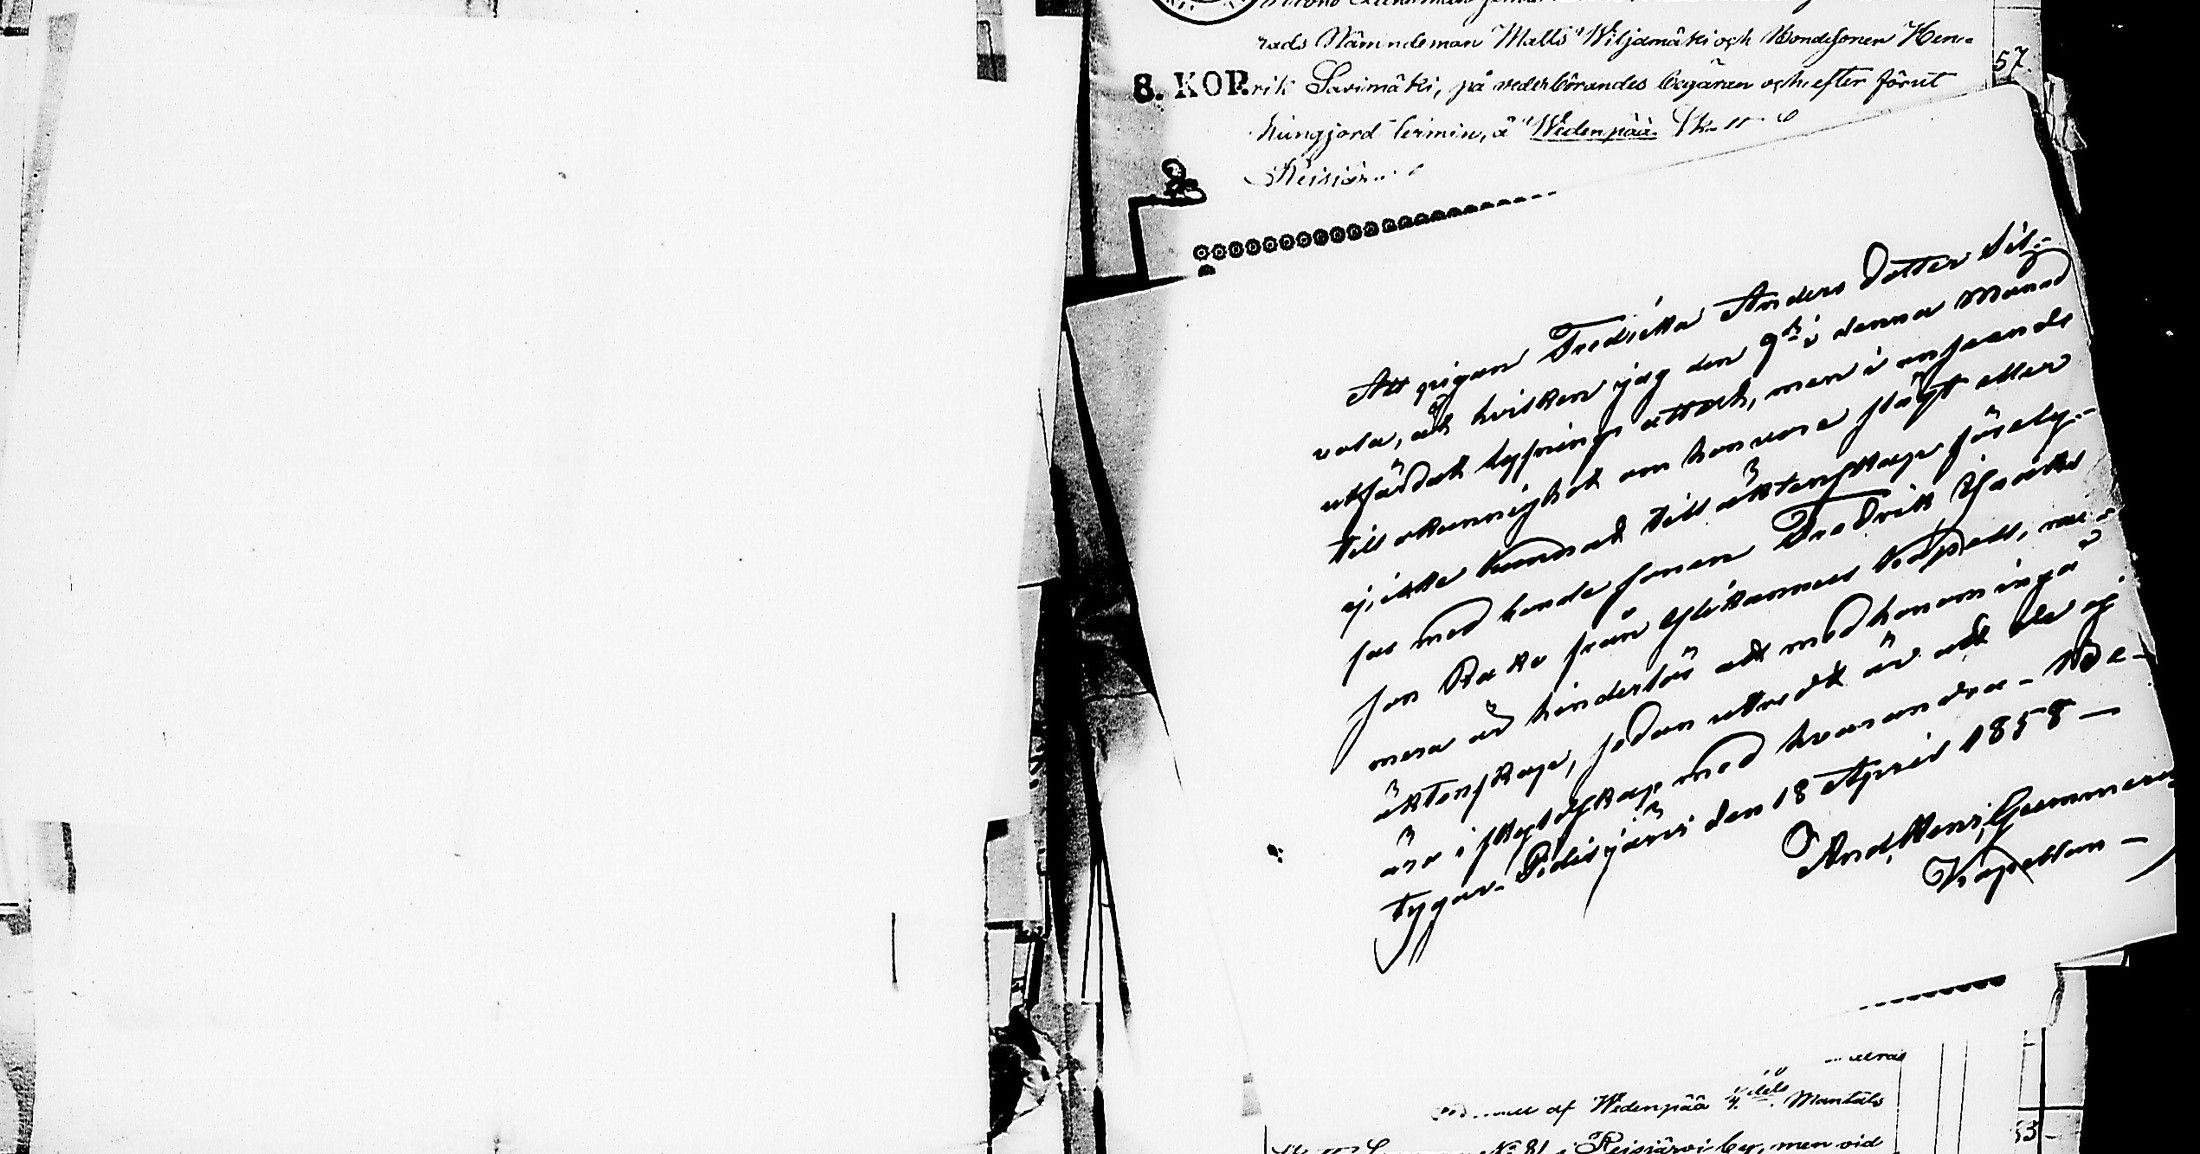 rads Nämndeman Matts Wiljamäki och Bondesonen Hen-
57.
8. KOP.
rik Savimäki, på vederbörandes begäran och efter förut
kungjord termin, å Wedenpää
Reisjärvi
Att pigan Fredrika Anders dotter Sil-
vola, åt hvilken jag den 9de i denna månad
utfärdat lysnings attest, men i anseende
till okunnighet om hon vore slägt eller
ej, icke kunnat till äktenskap förely-
sas med bonde sonen Fredrik Isaaks
son Kake från Ylikannus Kapell, nu-
mera är hinderlös att med honom ingå
äktenskap, sedan utredt är att de ej
äro i skyldskap med hvarandra - Be-
tygar. Pidisjärvi den 18 April 1858 —
And. Henr. Gummerus
Kapellan —
af Wedenpää 1/4 dels Mantals
53 -
No 81 i Reisjärvi by, men vid